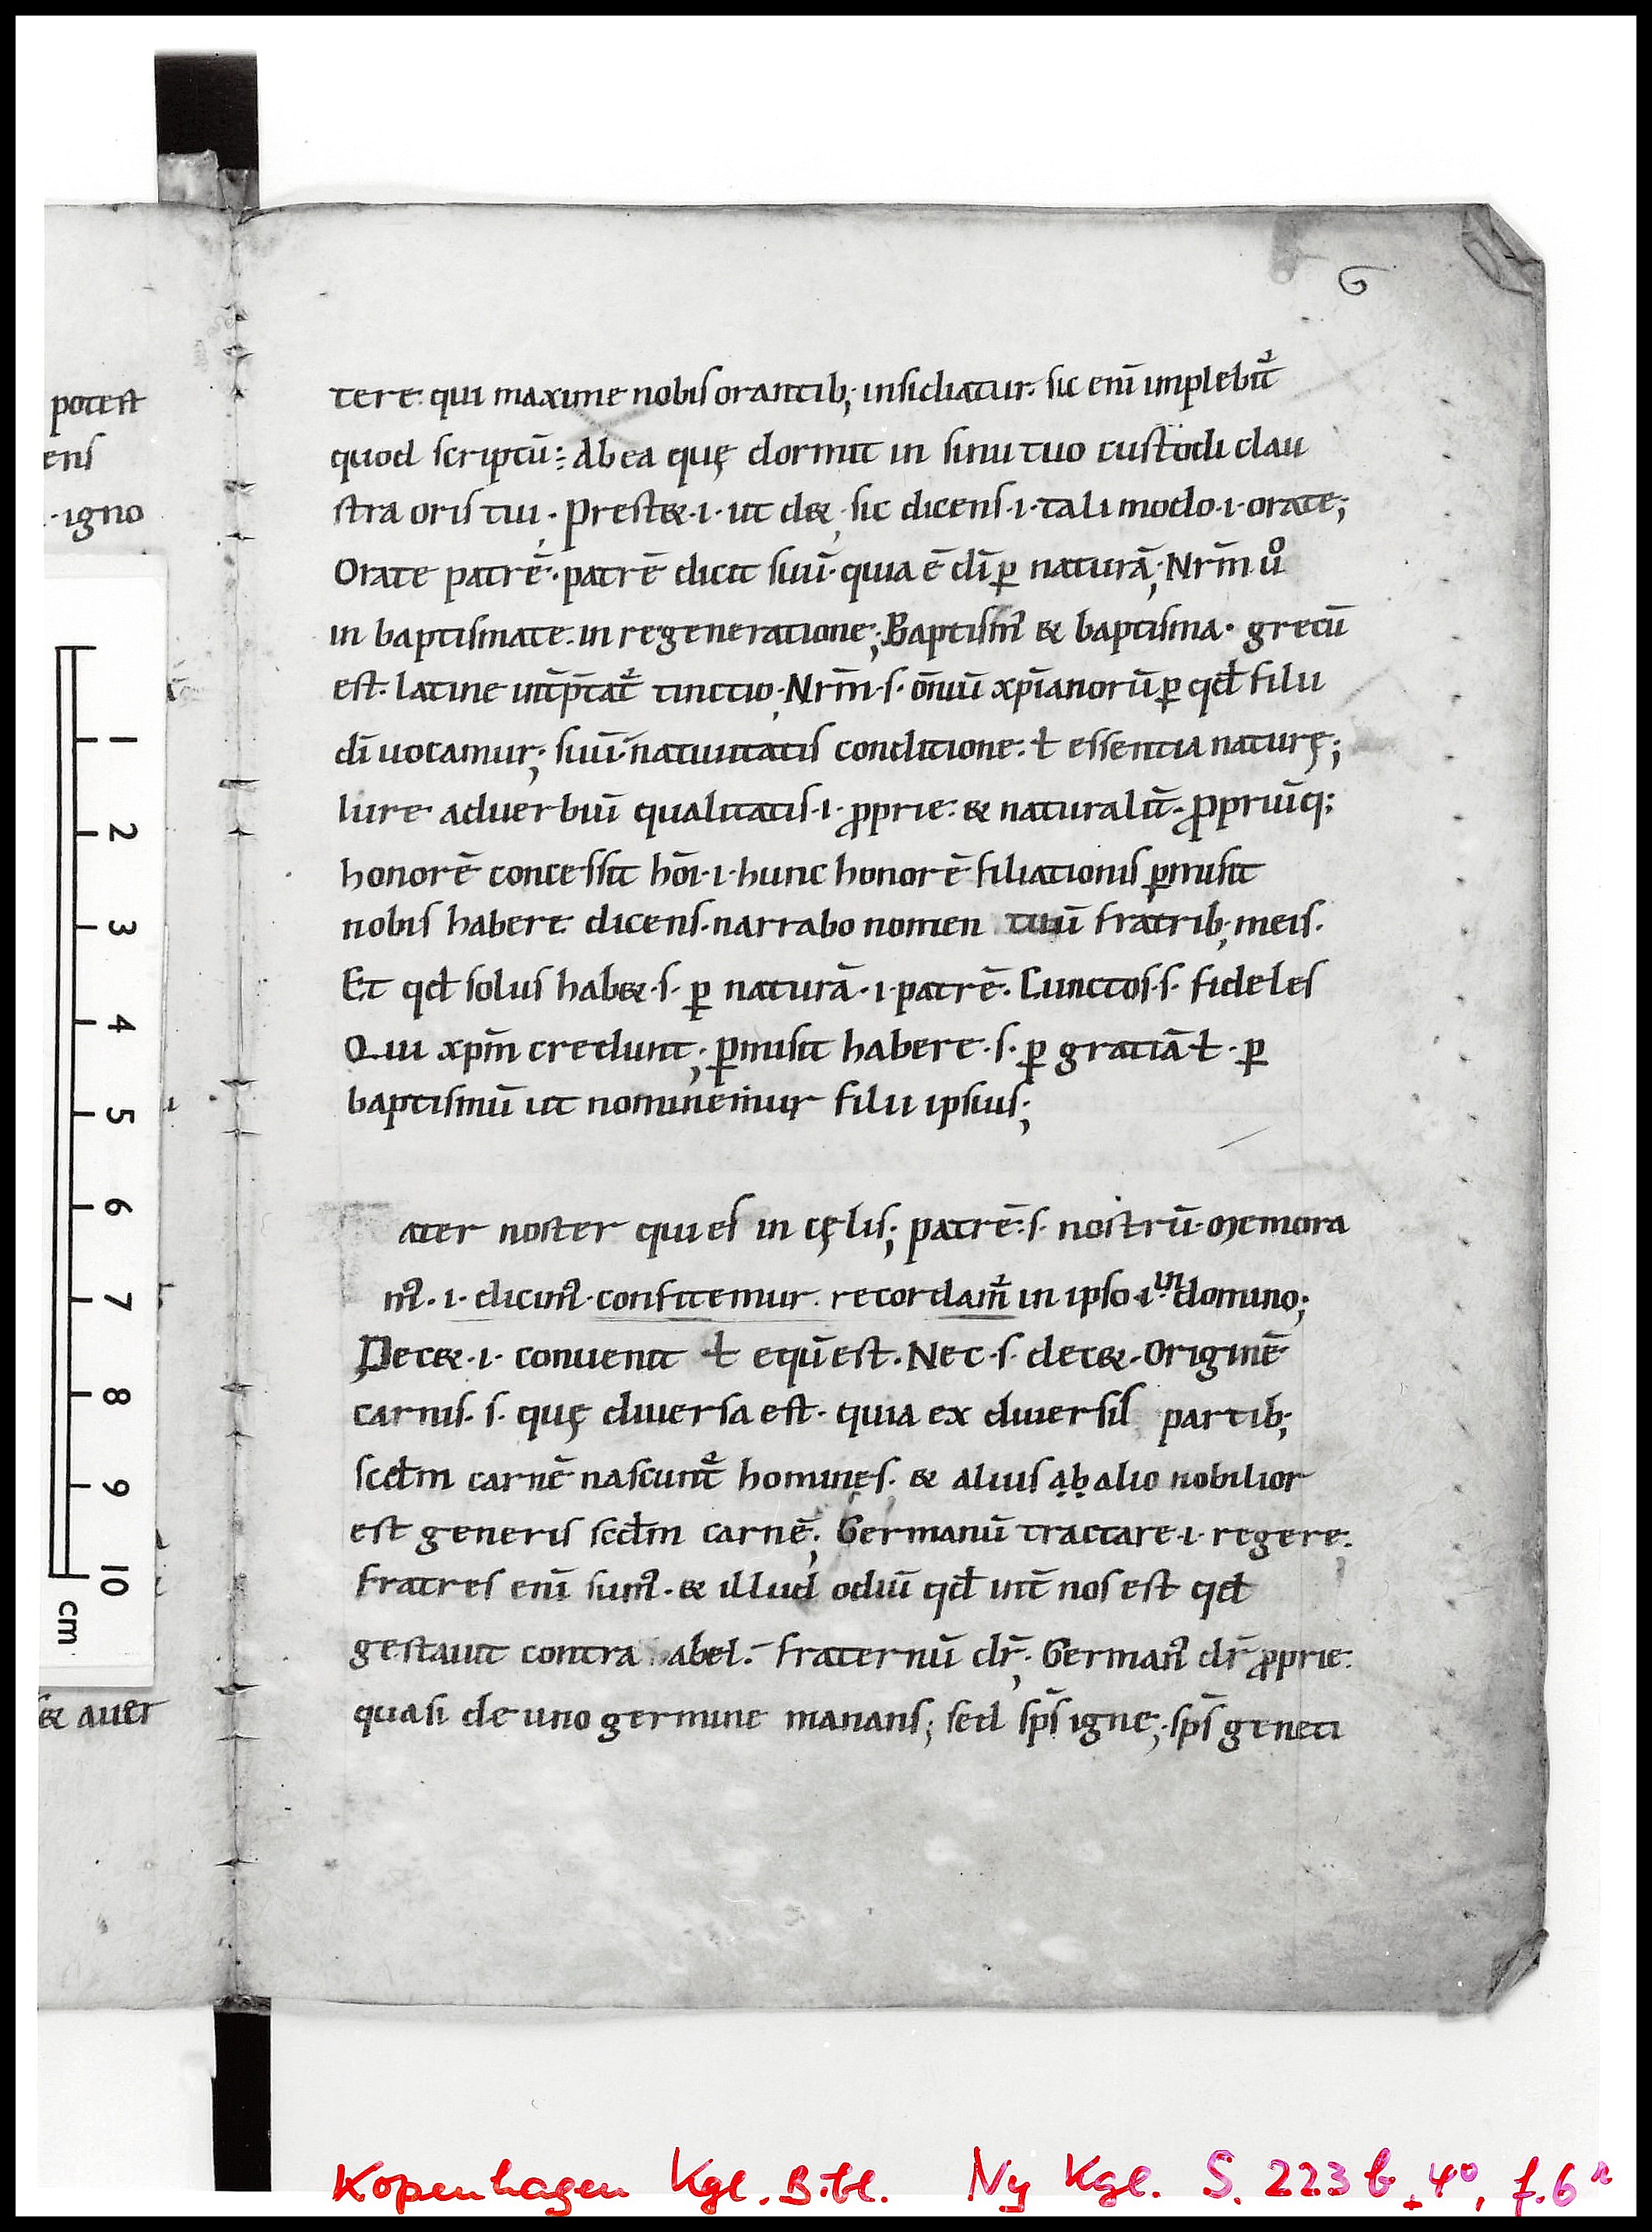 potest
ens
.igno
& auer
1
2
3
4
5
6
7
8
9
10
cm
6
tere. qui maxime nobis orantib; insidiatur. sic enī implebit᷑
quod scriptū÷ Ab ea quę dormit in sinu tuo custodi clau
stra oris tui. Prest&.i. ut d&; sic dicens.i. tali modo.i. orate;
Orate patrē. patrē dicit suū. quia ē dī ꝑ naturā; Nr̄m ůo
in baptismate. in regeneratione; Baptismꝰ & baptisma. grecū
est. latine int̄p̄tat᷑ tinctio; Nr̄m .s. om̄iū xp̄ianorū ꝑ qđ filii
dī uocamur; suū. natiuitatis conditione. ł essentia naturę;
Iure aduerbiū qualitatis .i. ꝓprie. & naturalit̄. ꝓpriūq;
honorē concessit hōi .i. hunc honorē filiationis ꝑmisit
nobis habere dicens. narrabo nomen tuū fratrib; meis.
Et qđ solus hab& .s. ꝑ naturā .i. patrē. Cunctos .s. fideles
Qui xp̄m credunt; ꝑmisit habere .s. ꝑ gratiā ł. ꝑ
baptismū ut nominemur filii ipsius;
ater noster qui es in cęlis; patrē .s. nostrū. memora
mꝰ .i. dicimꝰ. confitemur. recordam᷑ in ipso .i. in domino;
Dec& .i. conuenit ł equū est. Nec .s. dec&. Originē
carnis. s. quę diuersa est. quia ex diuersis partib;
scđm carnē nascunt᷑ homines. & alius ab alio nobilior
est generis scđm carnē; Germanū tractare .i. regere.
fratres enī sumꝰ. & illud odiū qđ int̄ nos est qđ
gestauit contra abel. fraternū dr̄; Germanꝰ dr̄ ꝓprie.
quasi de uno germine manans; sed sp̄s igne; sp̄s geneti
Kopenhagen Kgl. Bibl. Ny Kgl. S. 223 b 4°, f. 6 r